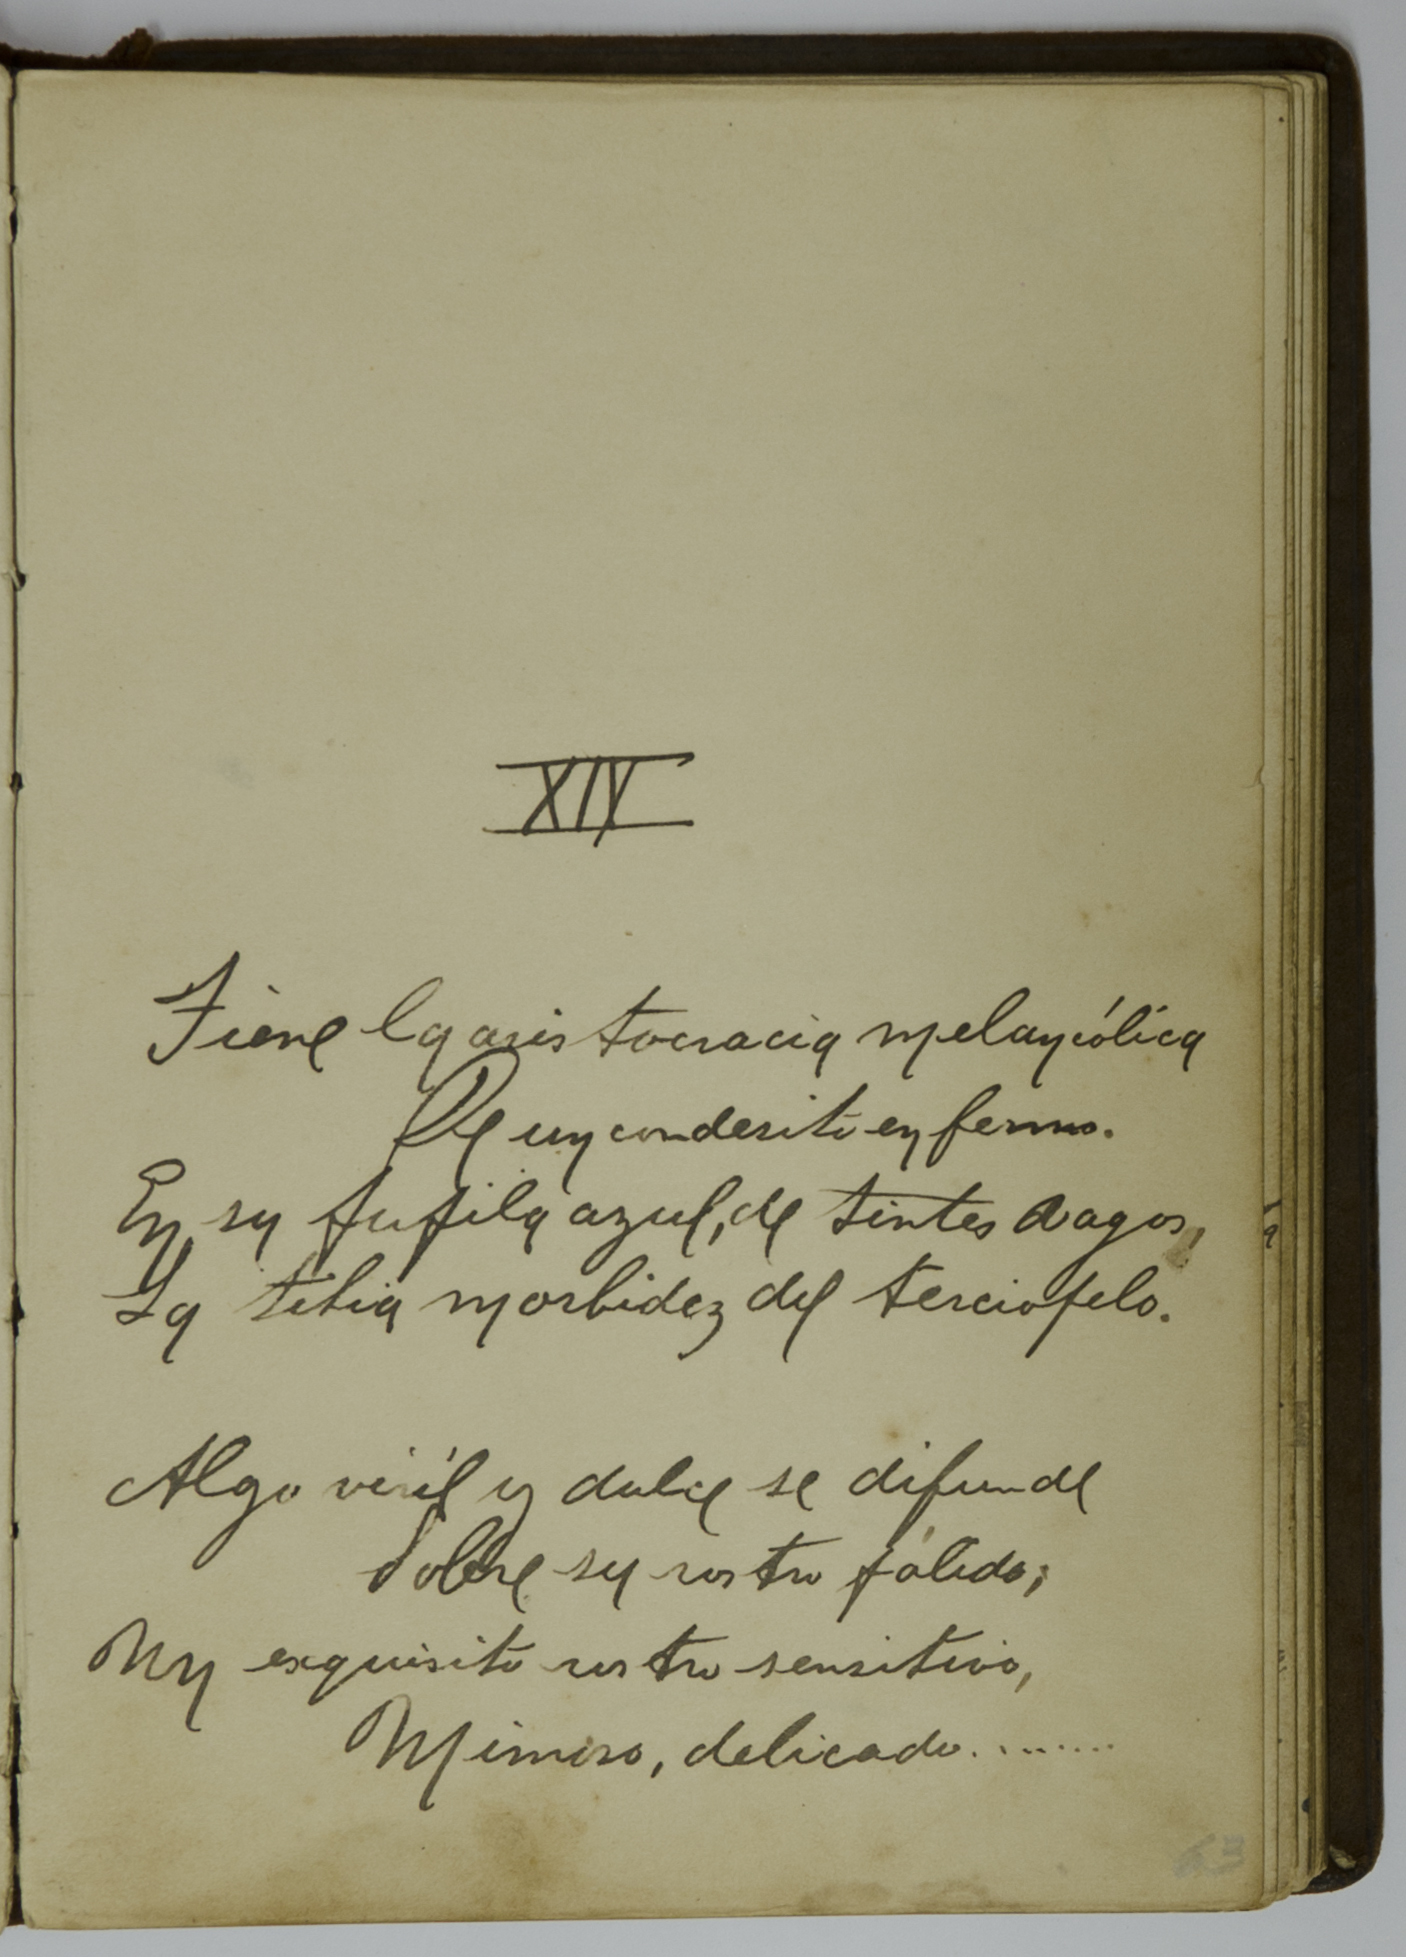 XIV
Tiene la aristocracia melancólica
De un condesito enfermo.
En su pupila azul, de tintes vagos,
La tibia morbidez del terciopelo.
Algo viríl y dulce se difunde
Sobre su rostro pálido;
Un exquisito rostro sensitivo,
Mimoso, delicado........